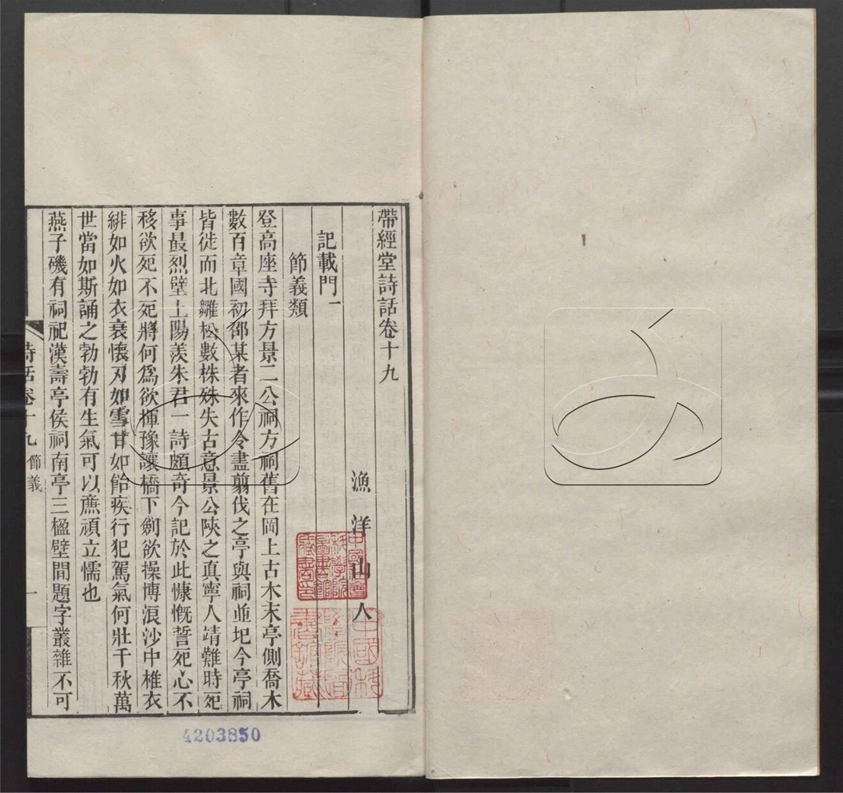 帶經堂詩話卷十九
漁洋山人
記載門一
節義類
登高座寺拜方景二公祠方祠舊在岡上古木末亭側喬木
數百章國初邵某者來作令盡翦伐之亭與祠並圯今亭祠
皆徙而北雖松數株殊失古意景公陝之真寧人靖難時死
事最烈壁上陽羨朱君一詩頗奇今記於此慷慨誓死心不
移欲死不死將何爲欲揮豫讓橋下劍欲操博浪沙中椎衣
緋如火如衣衰懷刃如雪甘如飴疾行犯駕氣何壯千秋萬
世當如斯誦之勃勃有生氣可以廉頑立懦也
燕子磯有祠祀漢壽亭侯祠南亭三楹壁間題字叢雜不可
詩話卷十九 節義 一
4203850